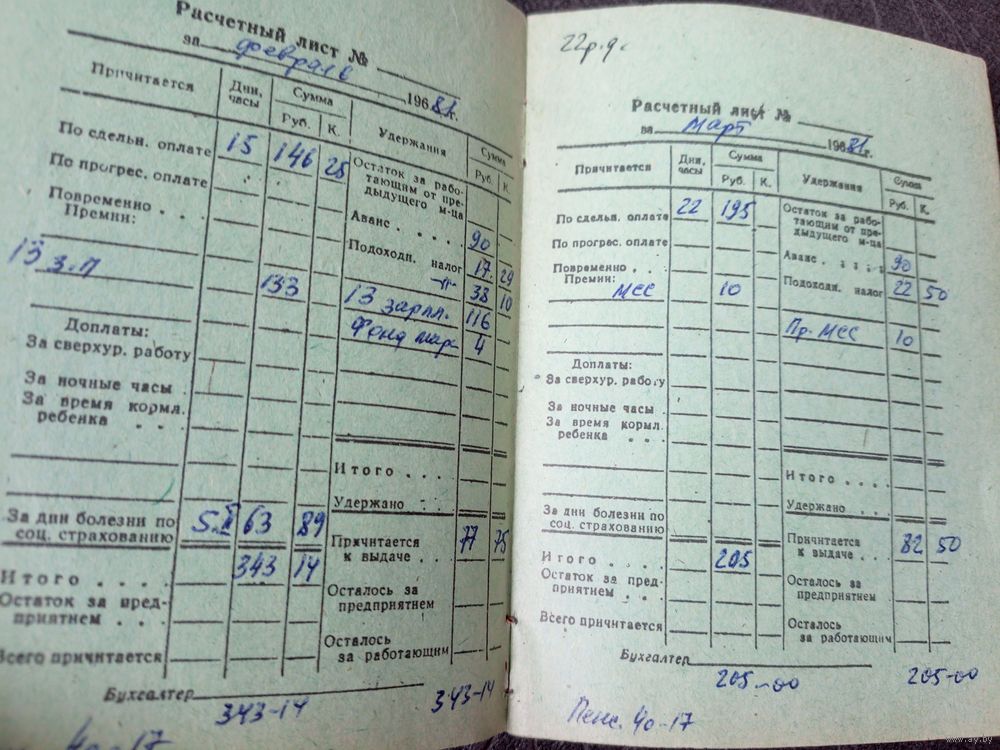 Расчетный лист №
за февраль 1968 81г.
Причитается Дни, часы Сумма Руб. К. Удержания Сумма Руб. К.
По сдельн. оплате 15 146 25 Остаток за рабо-
тающим от пре-
дыдущего м-ца
По прогрес. оплате
Повременно . . . Аванс . . . . 90
Премии: Подоходн. налог 17 29
13 з.п 133 —"— 38 10
13 зарпл. 116
Фонд мира 4
Доплаты:
За сверхур. работу
За ночные часы .
За время кормл.
ребенка . . .
Итого . . . .
Удержано . . .
За дни болезни по
соц. страхованию 5 63 89
Причитается
к выдаче . . . 77 75
Итого . . . . 343 14
Остаток за пред-
приятнем . . . Осталось за
предприятнем
Всего причитается Осталось
за работающим
Бухгалтер
343-14 343-14
40-17
22р.д.
Расчетный лист №
за март 1968 81г.
Причитается Дни, часы Сумма Руб. К. Удержания Сумма Руб. К.
По сдельн. оплате 22 195 Остаток за рабо-
тающим от пре-
дыдущего м-ца
По прогрес. оплате
Повременно . . . Аванс . : : : 90
Премии: Подоходн. налог 22 50
МСС 10
Пр. МСС 10
Доплаты:
За сверхур. работу
За ночные часы .
За время кормл.
ребенка . . .
Итого . . . .
Удержано . . .
За дни болезни по
соц. страхованию
Причитается
к выдаче . . . 82 50
Итого . . . . 205
Остаток за пред-
приятнем . . . Осталось за
предприятнем
Всего причитается Осталось
за работающим
Бухгалтер
205-00 205-00
Пенс. 40-17
www.ay.by